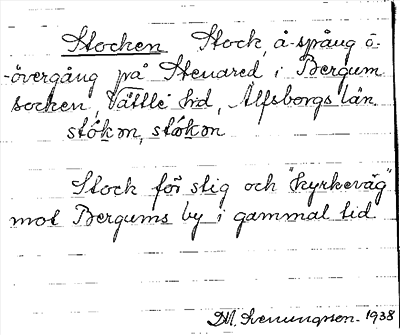 Stocken Stock, å-spång o.
-övergång på Stenared i Bergum
socken, Vättle hd, Älfsborgs län.
stókøn, stókøn
Stock för stig och "kyrkeväg"
mot Bergums by i gammal tid.
1938